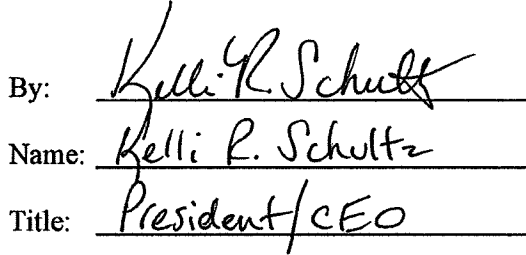 By: Kelli R. Schultz
Name: Kelli R. Schultz
Title: President/CEO